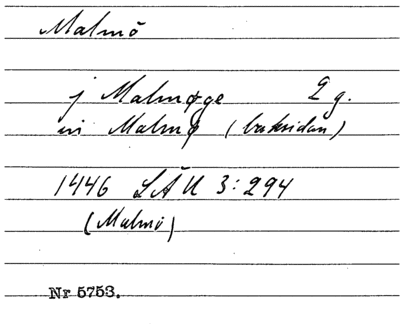 Malmö
j Malmøge 2 g.
in Malmø (baksidan)
1446 LÄU 3:294
(Malmö)
Nr 5753.